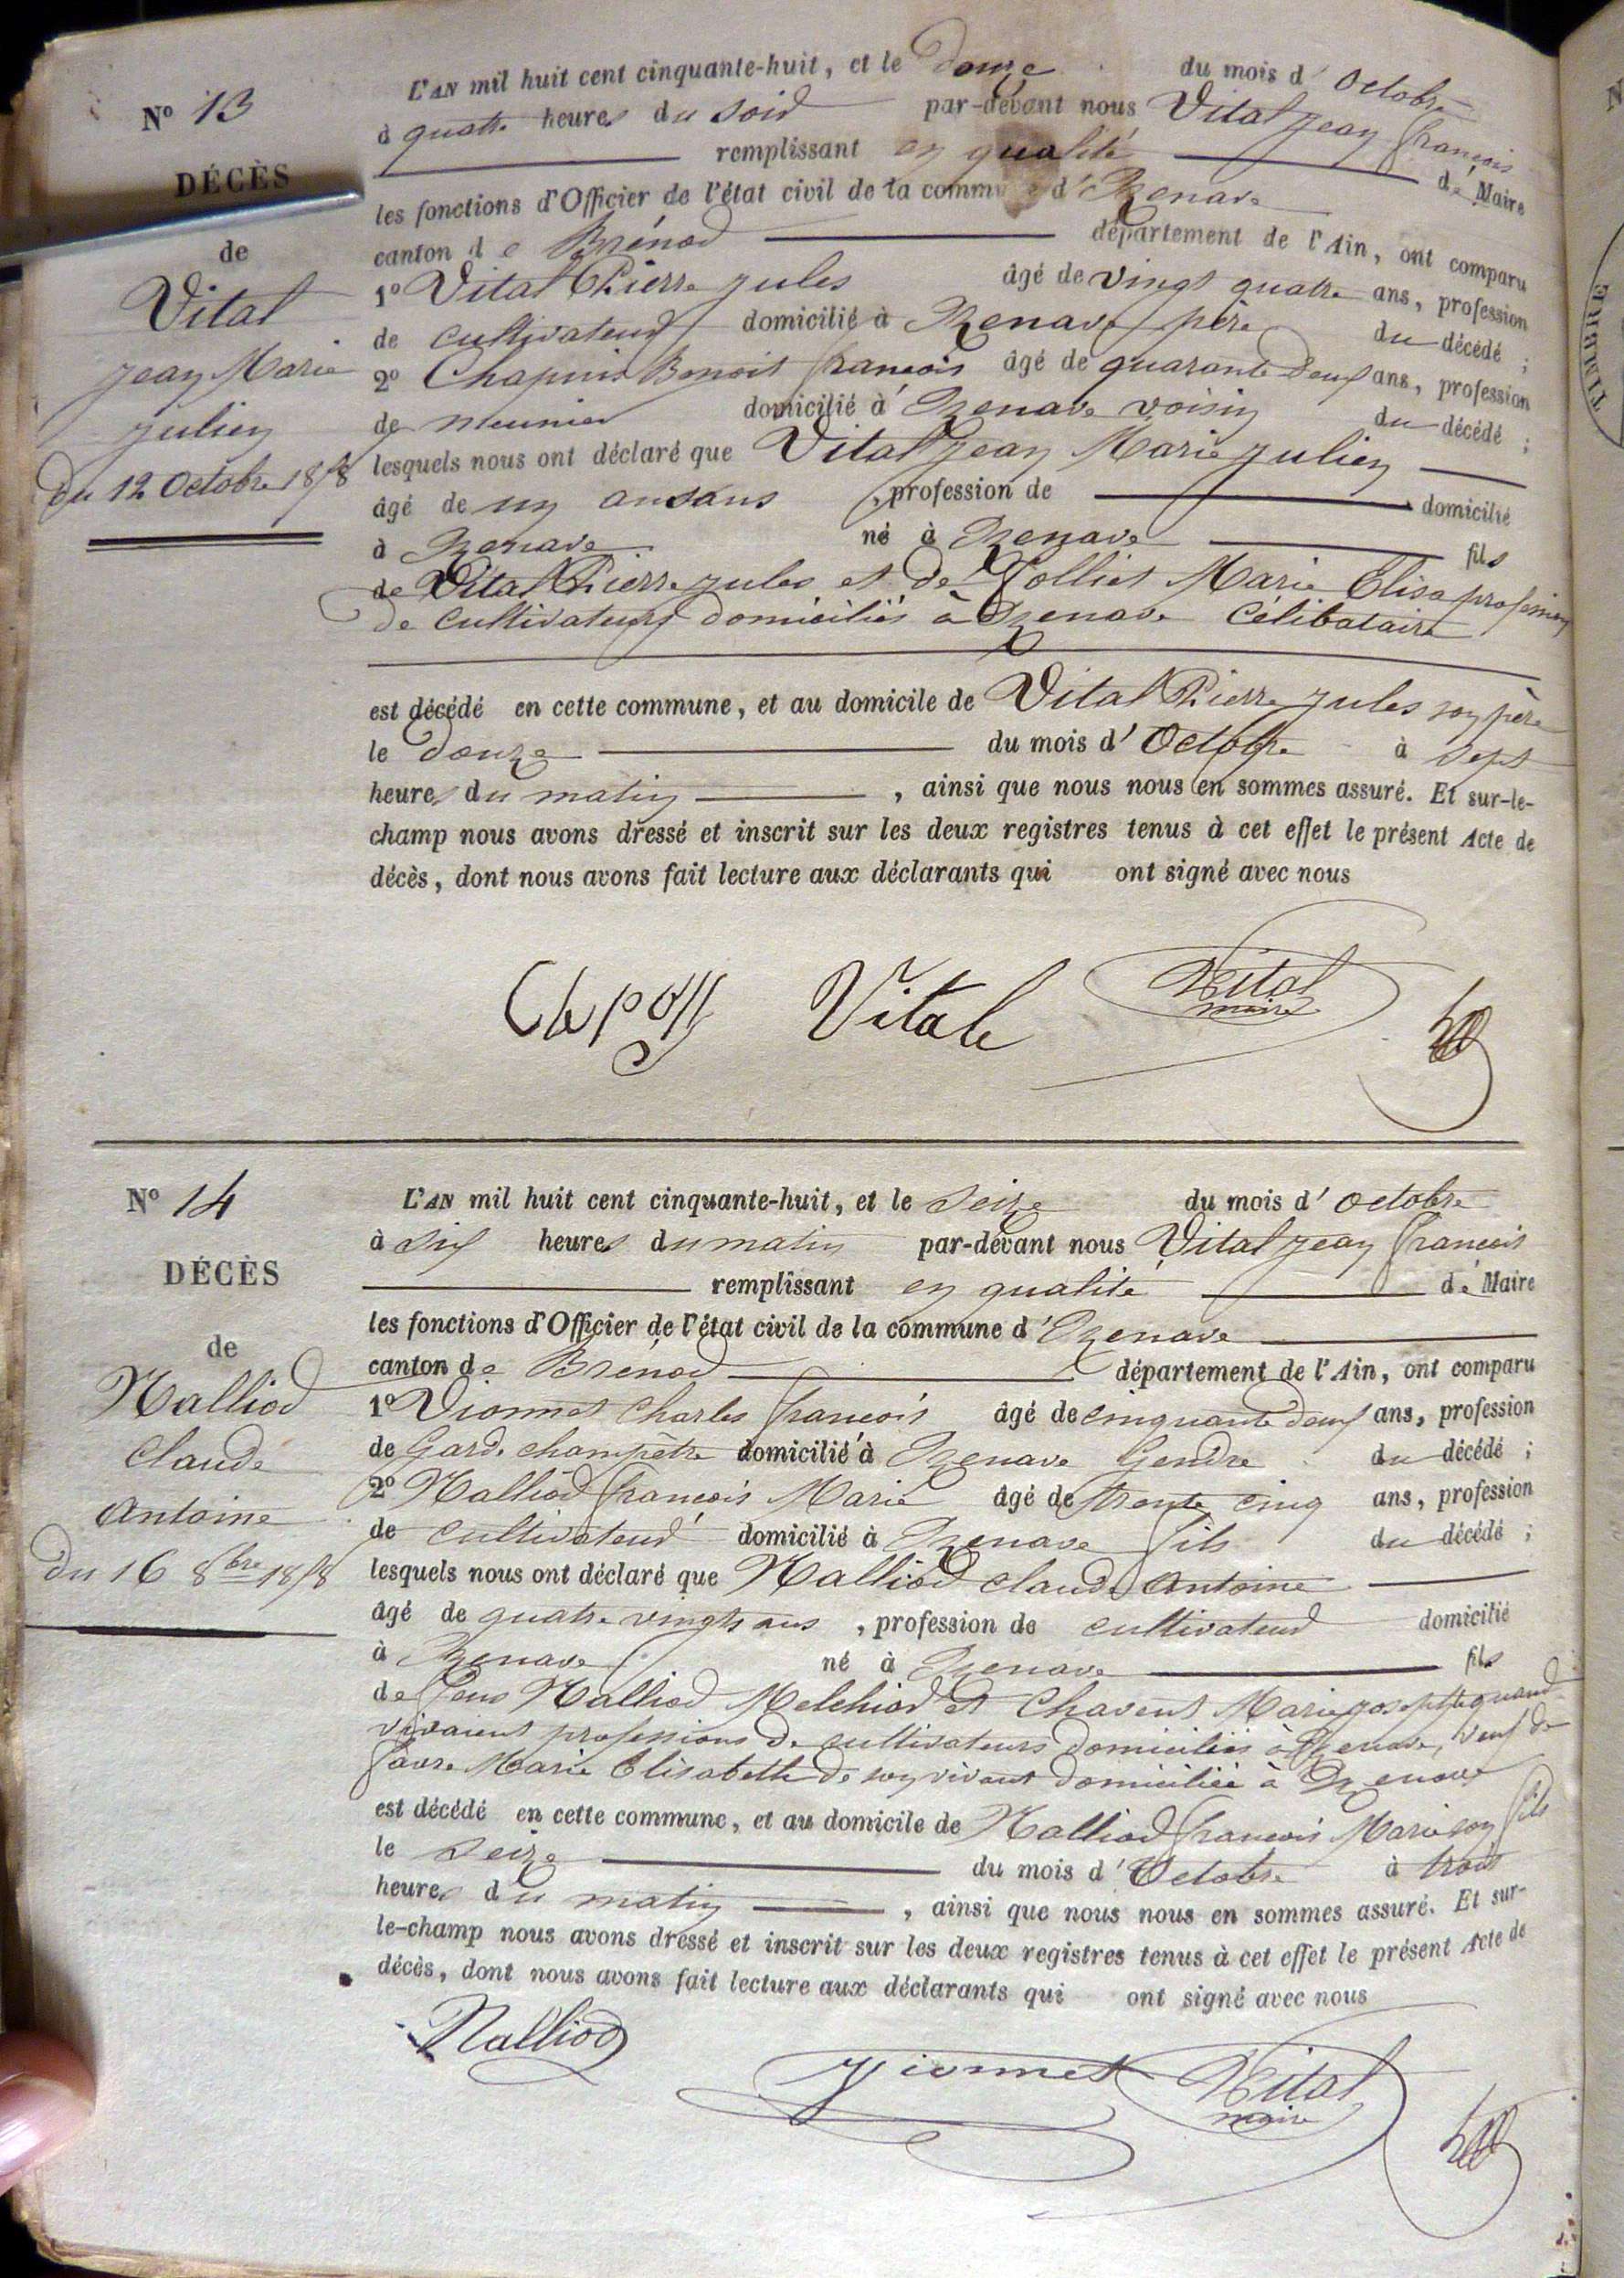 Nº 13
DÉCÈS
de
Vital
Jean Marie
julien
du 12 Octobre 1858
L'AN mil huit cent cinquante-huit, et le douze du mois d' Octobre
à quatre heures du soir par-devant nous Vital Jean françois
remplissant en qualité de Maire
les fonctions d'Officier de l'état civil de la commune d' Izenave
canton de Brénod département de l'Ain, ont comparu
1º Vital Pierre jules âgé de vingt quatre ans, profession
de cultivateur domicilié à Izenave père du décédé ;
2º Chapuis Benoit françois âgé de quarante deux ans, profession
de meunier domicilié à Izenave voisin du décédé ;
lesquels nous ont déclaré que Vital Jean Marie julien
âgé de un an sans , profession de domicilié
à Izenave né à Izenave fils
de Vital Pierre jules et de Tolliet Marie Elisa profession
de cultivateurs domiciliés à Izenave Célibataire
est décédé en cette commune, et au domicile de Vital Pierre jules son père
le douze du mois d' Octobre à sept
heures du matin , ainsi que nous nous en sommes assuré. Et sur-le-
champ nous avons dressé et inscrit sur les deux registres tenus à cet effet le présent Acte de
décès, dont nous avons fait lecture aux déclarants qui ont signé avec nous
Vitale Vital
maire
Nº 14
DÉCÈS
de
Nalliod
Claude
Antoine
du 16 8bre 1858
L'AN mil huit cent cinquante-huit, et le seize du mois d' octobre
à six heures du matin par-devant nous Vital Jean françois
remplissant en qualité de Maire
les fonctions d'Officier de l'état civil de la commune d' Izenave
canton de Brénod département de l'Ain, ont comparu
1º Vionnet Charles françois âgé de cinquante deux ans, profession
de Garde champêtre domicilié à Izenave Gendre du décédé ;
2º Nalliod françois Marie âgé de trente cinq ans, profession
de cultivateur domicilié à Izenave fils du décédé ;
lesquels nous ont déclaré que Nalliod Claude Antoine
âgé de quatre vingts ans , profession de cultivateur domicilié
à Izenave né à Izenave fils
de feus Nalliod Melchiod et Chavent Marie josephte quand
vivaient professions de cultivateurs domiciliés à Izenave, veuf de
favre Marie Elisabeth de son vivant domiciliée à Izenave
est décédé en cette commune, et au domicile de Nalliod françois Marie son fils
le seize du mois d' Octobre à trois
heures du matin , ainsi que nous nous en sommes assuré. Et sur-
le-champ nous avons dressé et inscrit sur les deux registres tenus à cet effet le présent Acte de
décès, dont nous avons fait lecture aux déclarants qui ont signé avec nous
Nalliod
Vionnet Vital
maire